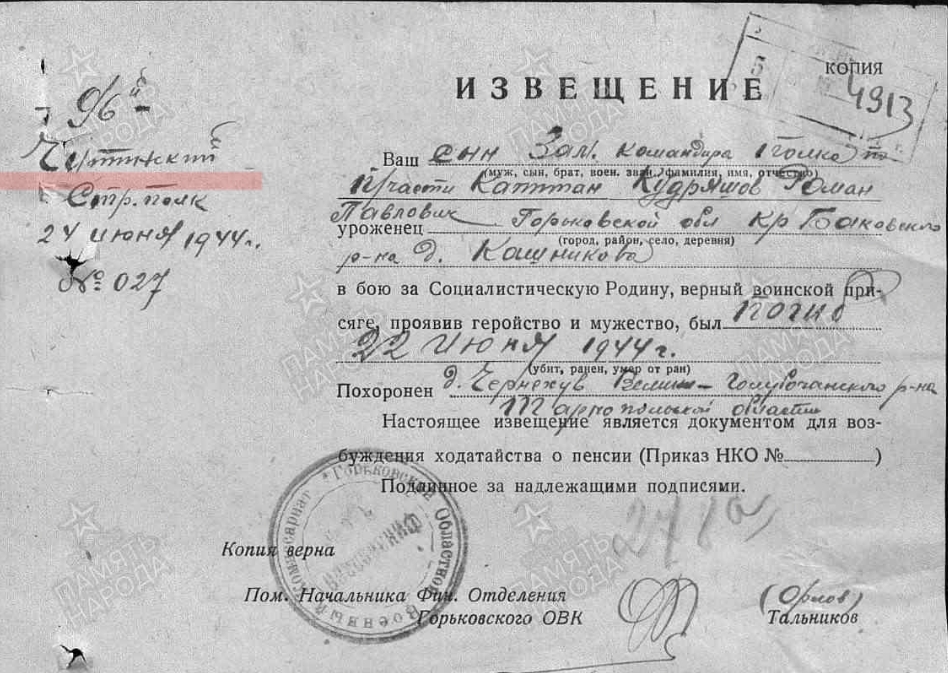 КОПИЯ
4913
ИЗВЕЩЕНИЕ
96й
Стр. полк
24 июня 1944 г.
№ 027
Ваш сын Зам. командира полка по
(муж, сын, брат, воен. звание, фамилия, имя, отчество)
Пр части Капитан Кудряшов Роман
Павлович
уроженец Горьковской обл Кр Баковского
(город, район, село, деревня)
р-на д. Кашникова
в бою за Социалистическую Родину, верный воинской при-
сяге, проявив геройство и мужество, был погиб
22 июня 1944 г.
(убит, ранен, умер от ран)
Похоронен д. Чернехув Велико-Голубочанского р-на
Тарнопольской области
Настоящее извещение является документом для воз-
буждения ходатайства о пенсии (Приказ НКО №        )
Подлинное за надлежащими подписями.
Горьковский Областной Военный Комиссариат
Копия верна
Пом. Начальника Фин. Отделения
Горьковского ОВК
(Орлов)
Тальников
ПАМЯТЬ НАРОДА